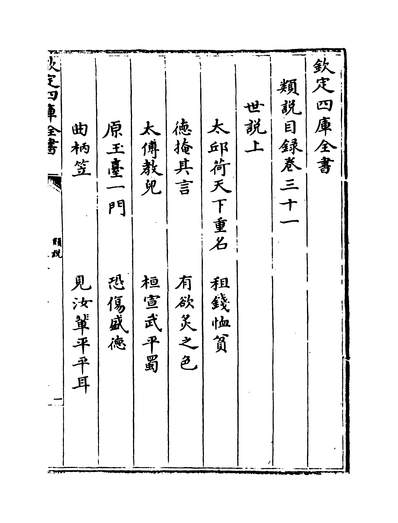 欽定四庫全書
類說目録卷三十一
世說上
太邱荷天下重名　租錢恤貧
德掩其言　有欲炙之色
太傅教兒　桓宣武平蜀
原王臺一門　恐傷盛德
曲柄笠　見汝輩平平耳
欽定四庫全書
類說
一